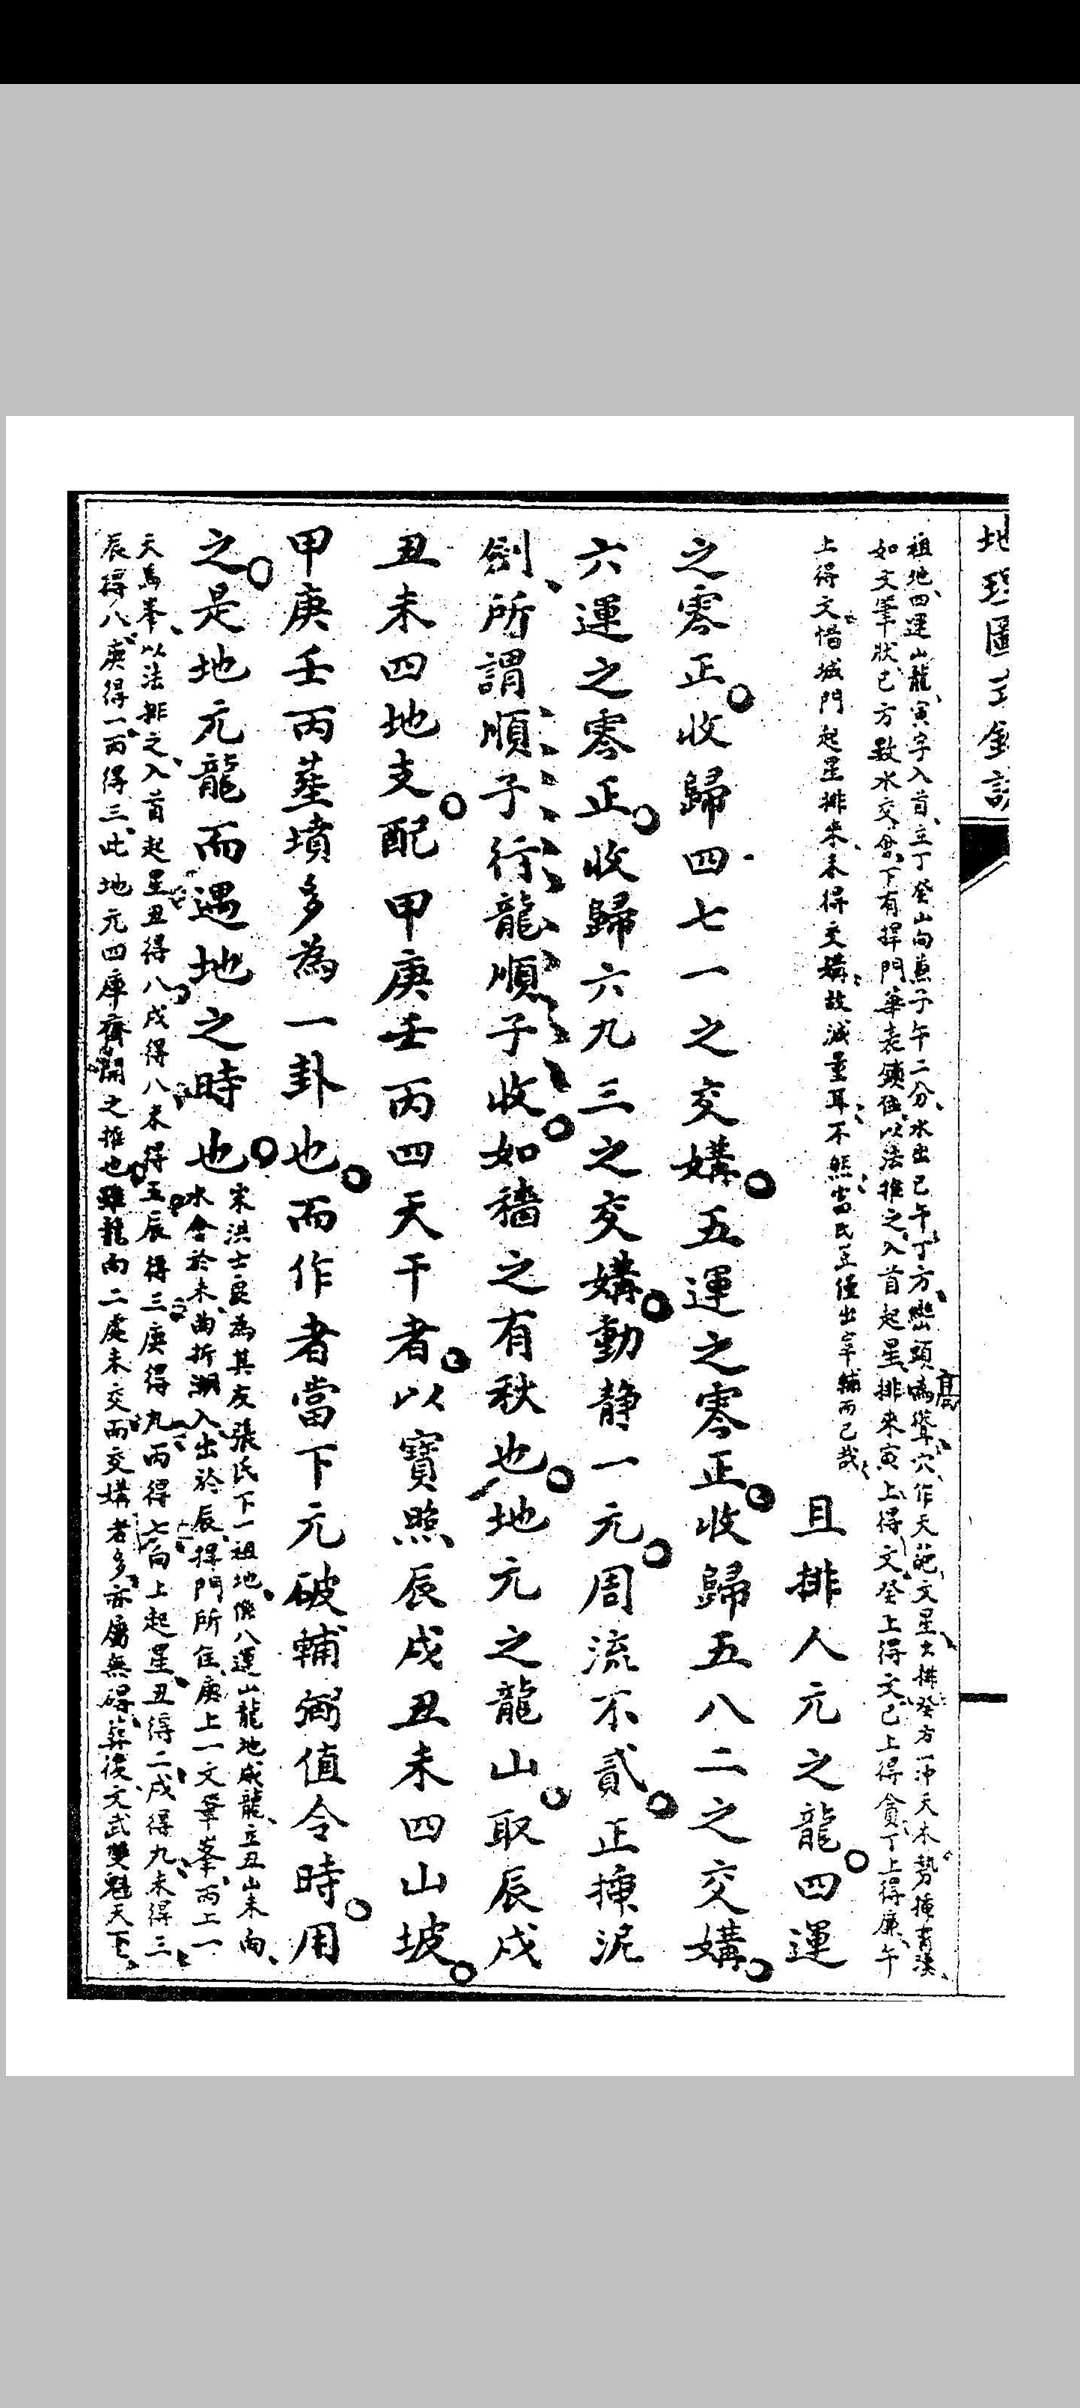 地理圖
祖地四運山龍寅字入首立丁癸山向兼子午二分水出巳午丁方巒頭高聳穴作天葩文星大排癸方一冲天木勢
如文筆狀巳方數水交會下有捍門華表鎮住以法推之入首起星排來寅上得文癸上得文巳上得貪丁上得廉午
上得文惜城門起星排來未得交媾故減量耳不然當民豈僅出宰輔而已哉
且排人元之龍四運
之零正收歸四七一之交媾五運之零正收歸五八二之交媾
六運之零正收歸六九三之交媾動静一元周流不貳正揀泥
劍所謂順子行龍順子收如穡之有秋也地元之龍山取辰戌
丑未四地支配甲庚壬丙四天干者以寶照辰戌丑未四山坡
甲庚壬丙葬墳多為一卦也而作者當下元破輔弼值令時用
之是地元龍而遇地之時也
宋洪士良為其友張氏下一祖地係八運山龍地戌龍立丑山未向
水會於未曲折潮入出於辰捍門所住庚上一文筆峯丙上一
天馬峯以法排之入首起星丑得八戌得八未得五辰得三庚得九丙得七向上起星丑得二戌得九未得三
辰得八庚得一丙得三此地元四庫齊開之推也雖龍向二處未交而交媾者多亦屬無碍葬後文武雙魁天下